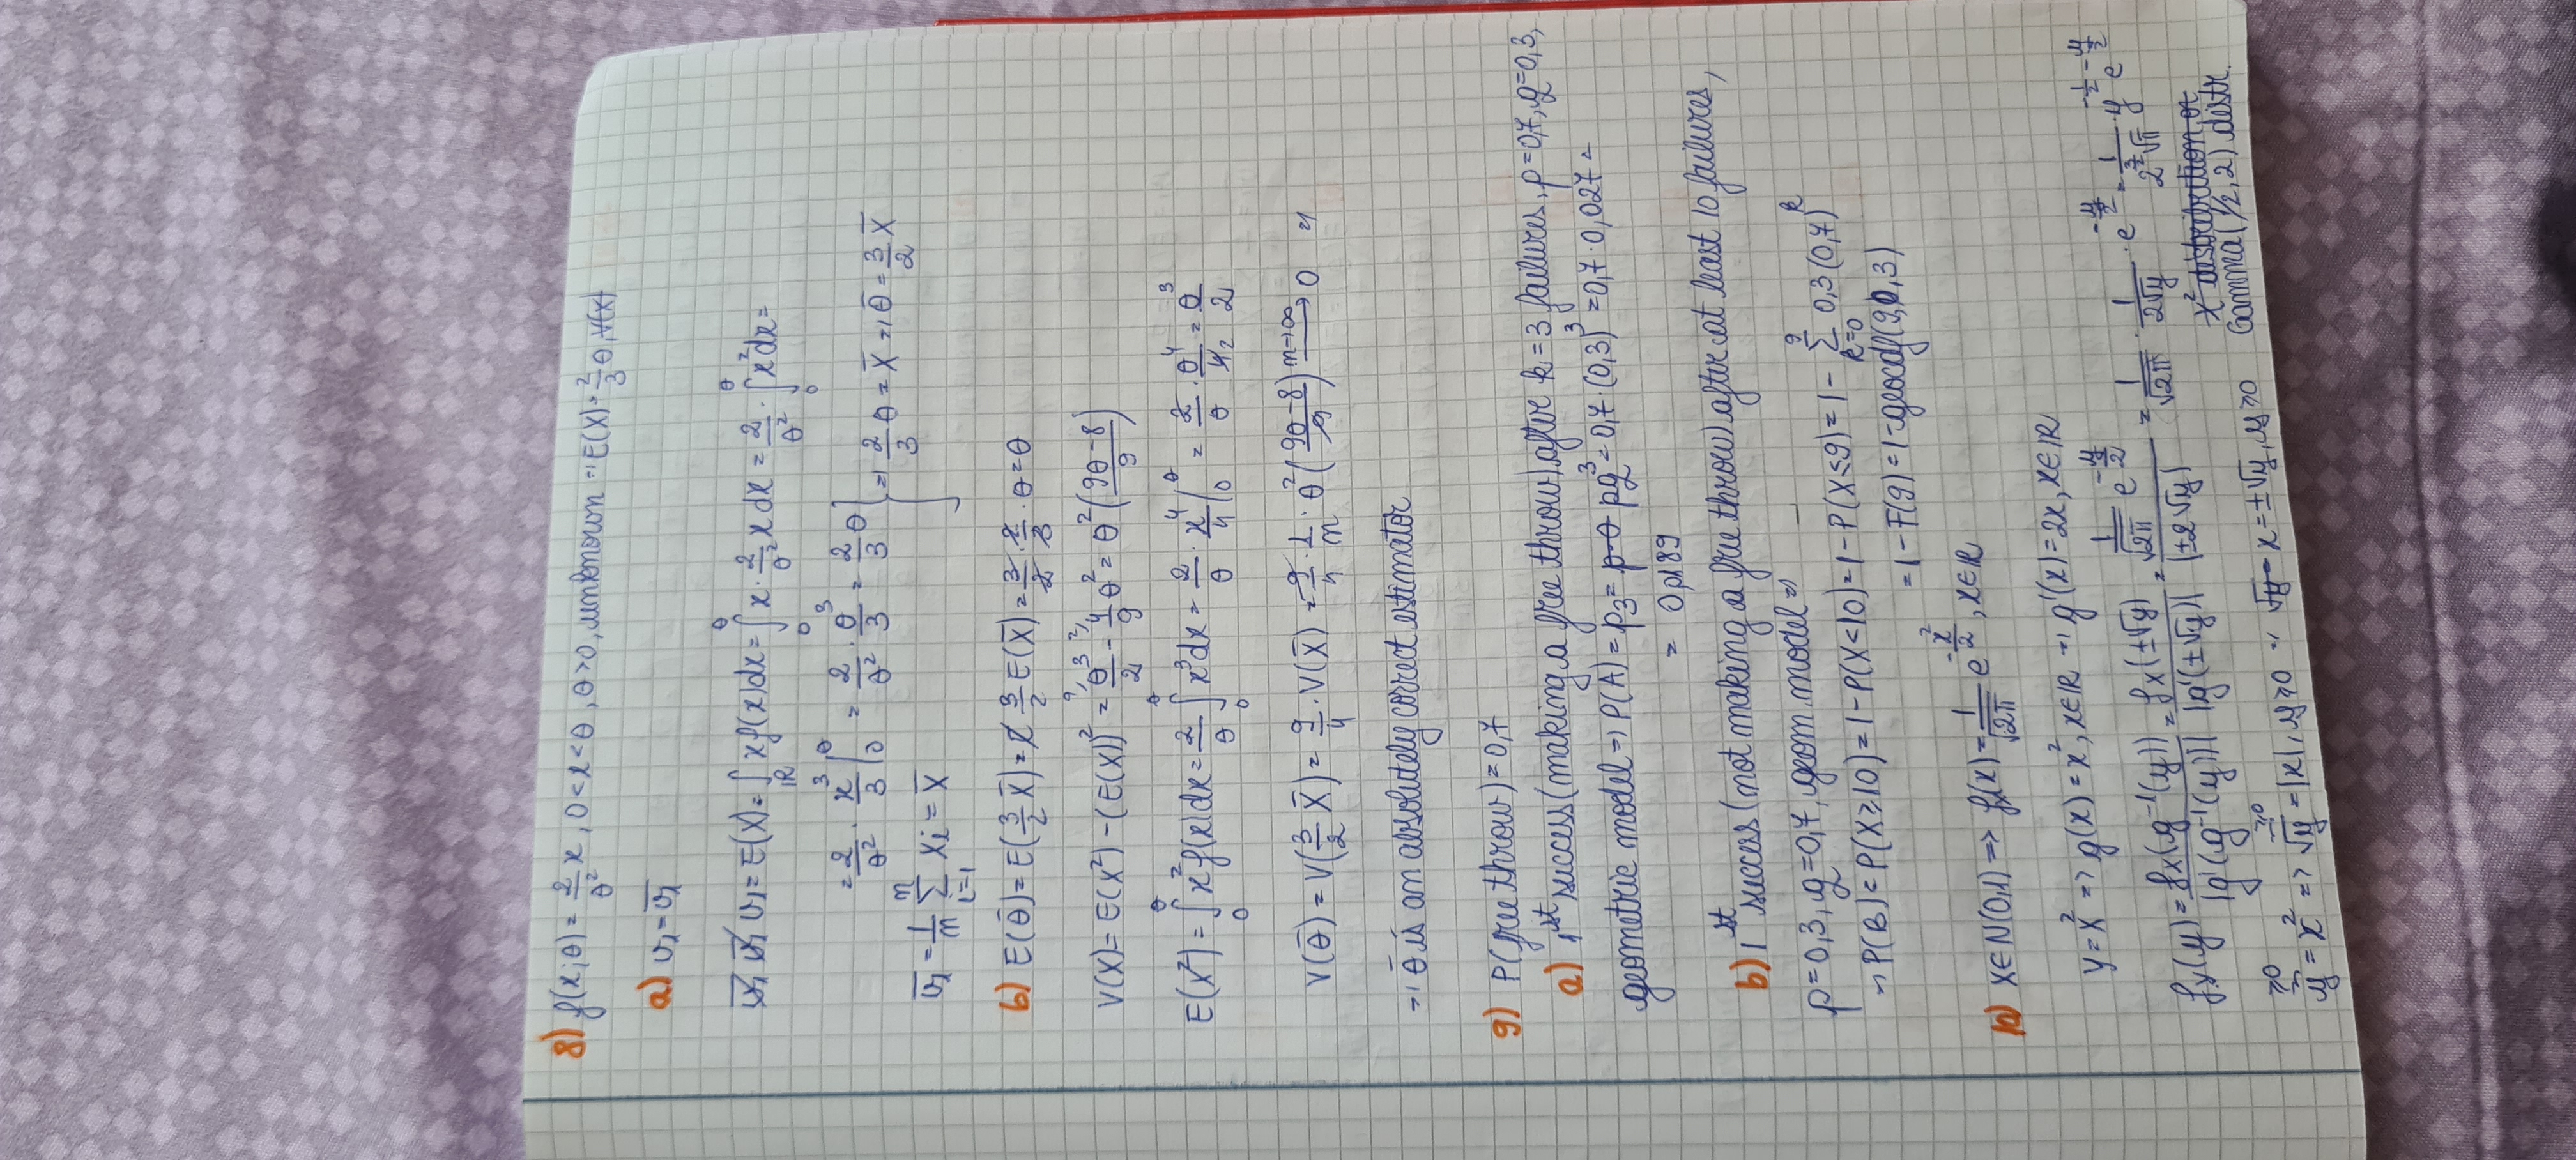 8) f(x;θ) = 2/θ² x, 0<x<θ, θ>0, unknown => E(X) = 2/3 θ, V(X)
a) ν₁ = ν̄₁
ν̄₁ ν̄₁ ν₁ = E(X) = ∫_ℝ x f(x) dx = ∫₀^θ x · 2/θ² x dx = 2/θ² · ∫₀^θ x² dx =
= 2/θ² · x³/3 |₀^θ = 2/θ² · θ³/3 = 2/3 θ
=> 2/3 θ = X̄ => θ̄ = 3/2 X̄
ν̄₁ = 1/n Σ_{i=1}^n Xi = X̄
b) E(θ̄) = E(3/2 X̄) = 3/2 E(X̄) = 3/2 · 2/3 · θ = θ
V(X) = E(X²) - (E(X))² = ⁹⁾θ³/2 - ²⁾4/9 θ² = θ² (9θ-8 / 9)
E(X²) = ∫₀^θ x² f(x) dx = 2/θ ∫₀^θ x³ dx = 2/θ · x⁴/4 |₀^θ = 2/θ · θ⁴/4₂ = θ³/2
V(θ̄) = V(3/2 X̄) = 9/4 · V(X̄) = 9/4 · 1/n · θ² (9θ-8 / 9) n→∞ → 0 =>
=> θ̄ is an absolutely correct estimator
9) P(free throw) = 0,7
a) 1st success (making a free throw) after k = 3 failures, p = 0,7, q = 0,3,
geometric model => P(A) = p₃ = p-0 pq³ = 0,7 · (0,3)³ = 0,7 · 0,027 =
= 0,0189
b) 1st success (not making a free throw) after at least 10 failures,
p = 0,3, q = 0,7, geom. model =>
=> P(B) = P(X≥10) = 1-P(X<10) = 1-P(X≤9) = 1 - Σ_{k=0}^9 0,3 (0,7)^k
= 1 - F(9) = 1-geocdf(9,0,3)
10) X∈N(0,1) => fₓ(x) = 1/√2π e^{-x²/2}, x∈ℝ
Y = X² => g(x) = x², x∈ℝ => g'(x) = 2x, x∈ℝ
f_Y(y) = f_X(g⁻¹(y)) / |g'(g⁻¹(y))| = f_X(±√y) / |g'(±√y)| = 1/√2π e^{-y/2} / |±2√y| = 1/√2π · 1/2√y · e^{-y/2} = 1/2^{3/2}√π · y^{-1/2} e^{-y/2}
X² distribution or
Gamma(1/2, 2) distr.
≥0 ≥0
y = x² => √y = |x|, y≥0 => √y= x = ±√y, y≥0